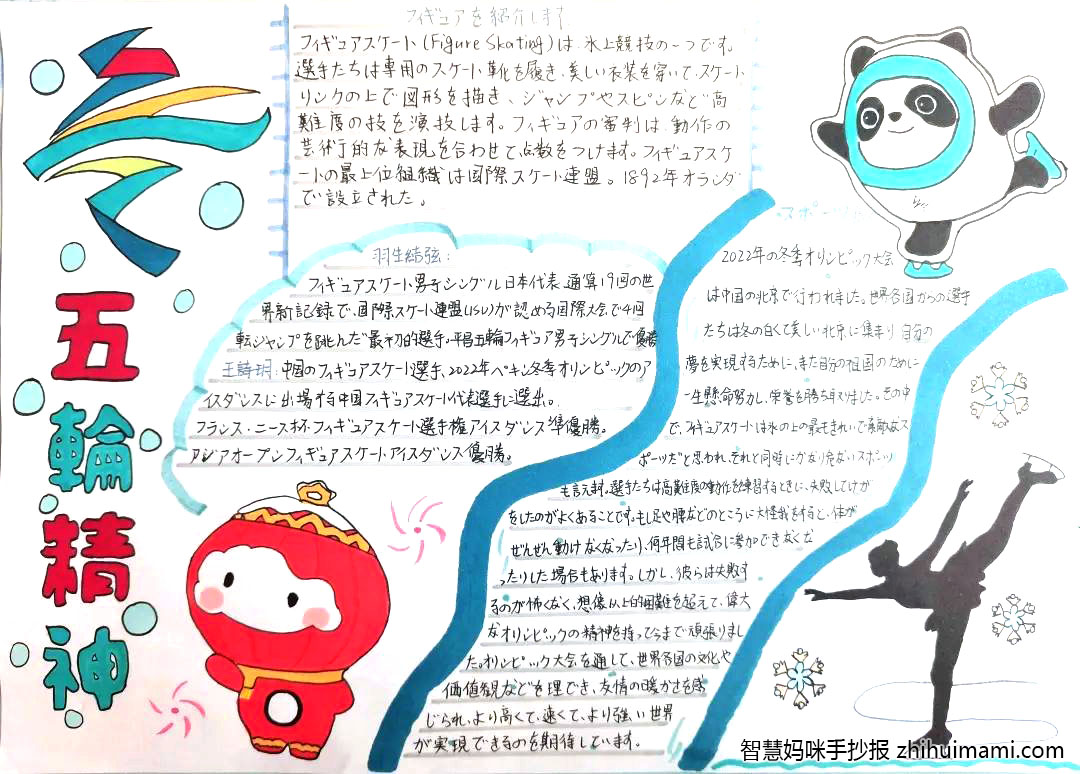 フィギュアを紹介します
フィギュアスケート(Figure Skating)は、氷上競技の一つです。
選手たちは専用のスケート靴を履き、美しい衣装を穿いて、スケート
リンクの上で図形を描き、ジャンプやスピンなど高
難度の技を演技します。フィギュアの審判は、動作の
芸術的な表現を合わせて、点数をつけます。フィギュアスケ
ートの最上位組織は国際スケート連盟。1892年オランダ
で設立された。
五輪精神
羽生結弦:
フィギュアスケート男子シングル日本代表、通算19回の世
界新記録で、国際スケート連盟(ISU)が認める国際大会で4回
転ジャンプを跳んだ最初的選手。平昌五輪フィギュア男子シングルで優勝
王詩玥:中国のフィギュアスケート選手、2022年ペキン冬季オリンピックのア
イスダンスに出場する中国フィギュアスケート代表選手に選出。
フランス・ニース杯フィギュアスケート選手権アイスダンス準優勝。
アジアオープンフィギュアスケートアイスダンス優勝。
スポーツ
2022年の冬季オリンピック大会
は中国の北京で行われました。世界各国からの選手
たちは冬の白くて美しい北京に集まり、自分の
夢を実現するために、また自分の祖国のために
一生懸命努力し、栄誉を勝ち取りました。その中
で、フィギュアスケートは氷の上の最もきれいで素敵なス
ポーツだと思われ、それと同時にかなり危ないスポーツ
も言えます。選手たちは高難度の動作を練習するときに、失敗してけが
をしたのがよくあることです。もし足や腰などのところに大怪我をすると、体が
ぜんぜん動けなくなったり、何年間も試合に参加できなくな
ったりした場合もあります。しかし、彼らは失敗す
るのが怖くなく、想像以上的困難を超えて、偉大
なオリンピックの精神を持って今まで頑張りまし
た。オリンピック大会を通して、世界各国の文化や
価値観などを理でき、友情の暖かさを感
じられ、より高くて、速くて、より強い世界
が実現できるのを期待しています。
智慧妈咪手抄报 zhihuimami.com